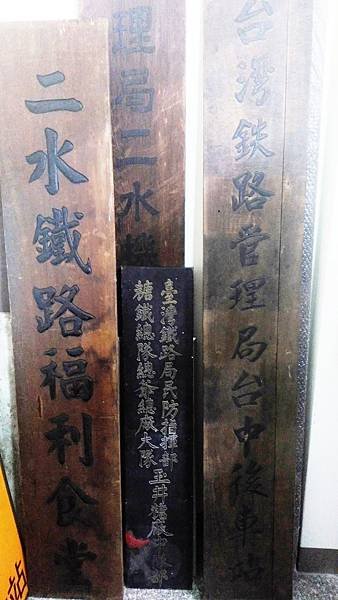 二水鐵路福利食堂
理局二水機
臺灣鐵路局民防指揮部
糖鐵總隊總爺總廠大隊
玉井糖廠中隊部
台灣鉄路管理局台中後車站
站